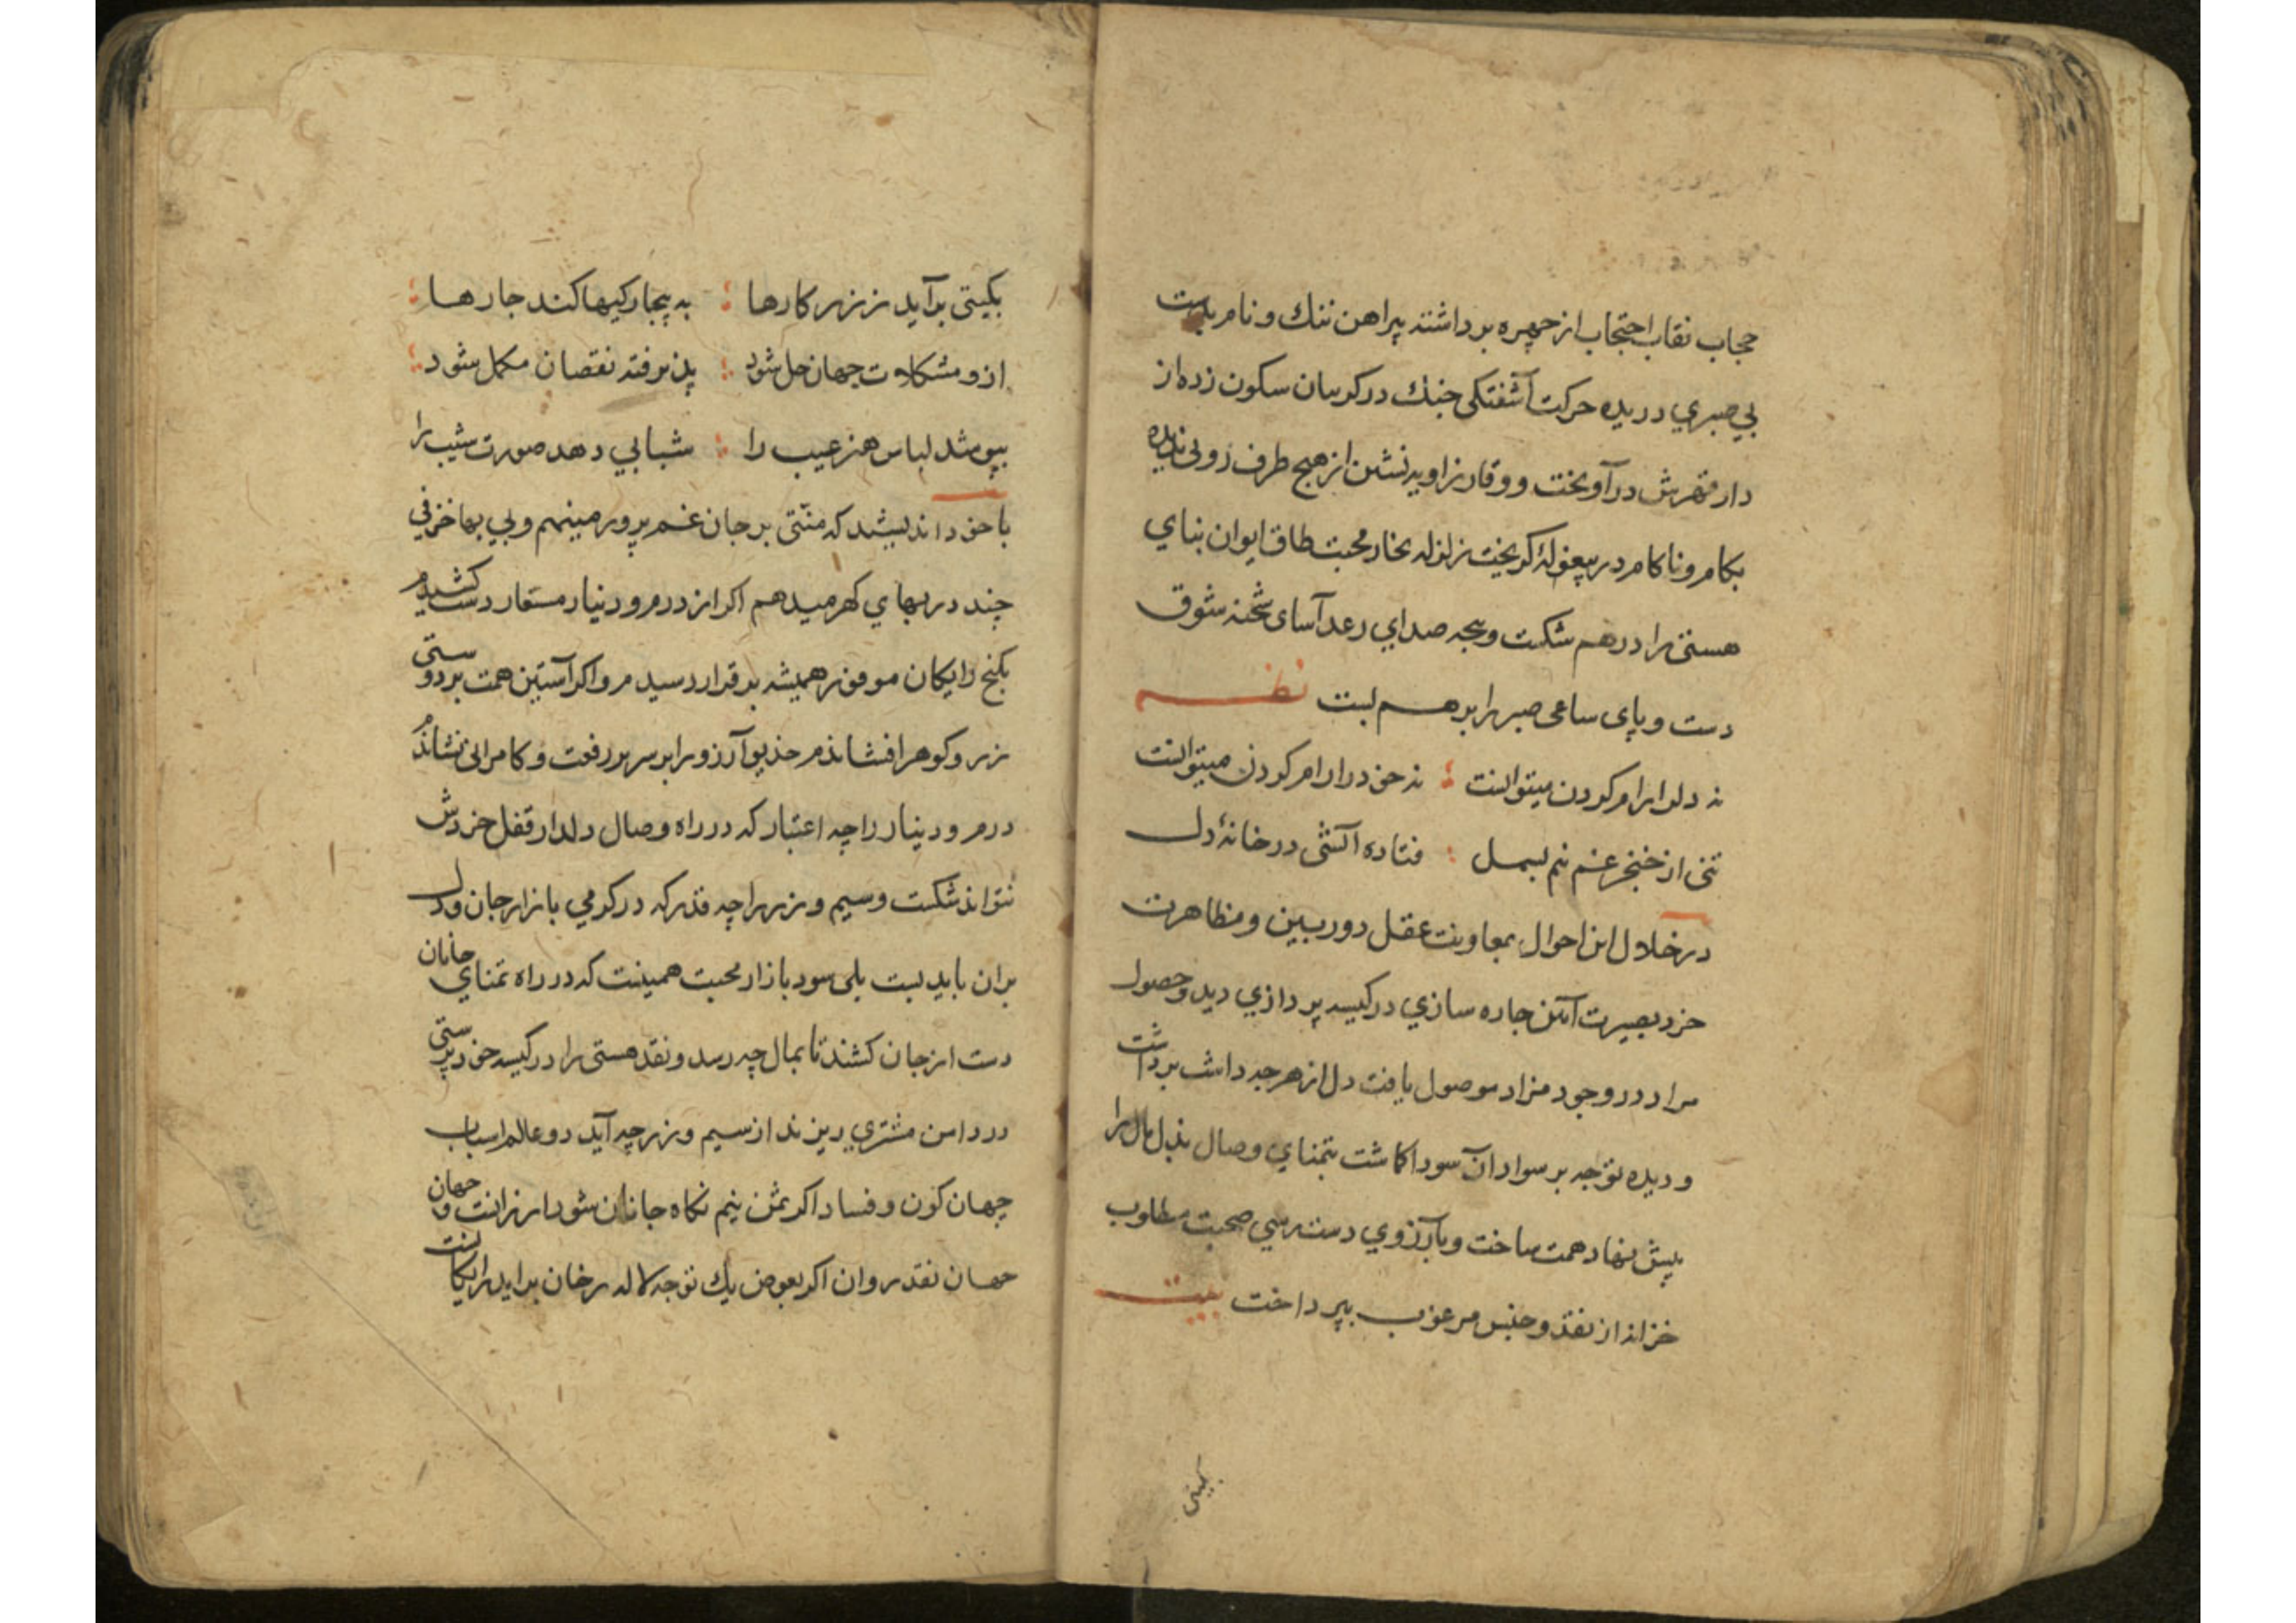 حجاب نقاب احتجاب از چهره برداشته پیراهن ننك و نام بدست
بی صبري دریده حرکت آشفتکی جنك در کریبان سکون زده از
دار قهرش در آویخت و وقار زاویه نشین از هیچ طرف روی ندیده
بکام و ناکام در بیغولهٔ کریخت زلزله بخار محبت طاق ایوان بنای
هستی را در هم شکست و پنجه صدای رعد آسای شحنه شوق
دست و پای ساعی صبر را بر هم بست نظم
نه دلرا رام کردن میتوانست ؛ نه خود را رام کردن میتوانست
تنی از خنجر غم نیم بسمل ؛ فتاده آتشی در خانهٔ دل
در خلال این احوال بمعاونت عقل دوربین و مظاهرت
خرد بصیرت آئین چاره سازي در کیسه پردازي دید و حصول
مراد در وجود مزاد موصول یافت دل از هر چه داشت برداشت
و دیده توجه بر سواد آن سودا کاشت بتمناي وصال بذل مال را
پیش نهاد همت ساخت و بآرزوي دست رسي صحبت مطلوب
خزانه از نقد و جنس مرغوب بپرداخت بیت
بکیتی
بکیتی برآید ز زر کارها ؛ به بیچارکیها کند چارها ؛
ازو مشکلات جهان حل شود ؛ پذیرفته نقصان مکمل شود ؛
بپوشد لباس هنر عیب را ؛ شبابي دهد صورت شیب را
با خود اندیشد که منتی بر جان غم پرور مینهم و بی بها خزفی
چند در بهاي کهر میدهم اکر از درم و دینار مستعار دست کشیدم
بکنج رایکان موفور همیشه بر قرار رسیدم و اکر آستین همت بر دوستی
زر و کوهر افشاندم خدیو آرزو را بر سریر رفعت و کامرانی نشاندم
درم و دینار را چه اعتبار که در راه وصال دلدار قفل خردش
نتواند شکست و سیم و زر را چه قدر که در کرمي بازار جان و دل
بران باید بست بلی سود بازار محبت همینست که در راه تمناي جانان
دست از جان کشند تا بمال چه رسد و نقد هستی را در کیسه خود پرستی
در دامن مشتری ریزند از سیم و زر چه آید دو عالم اسباب
جهان کون و فساد اکر بثمن نیم نکاه جانان شود ارزانست و جهان
جهان نقد روان اکر بعوض یك توجه لاله رخان برآید رایکانست